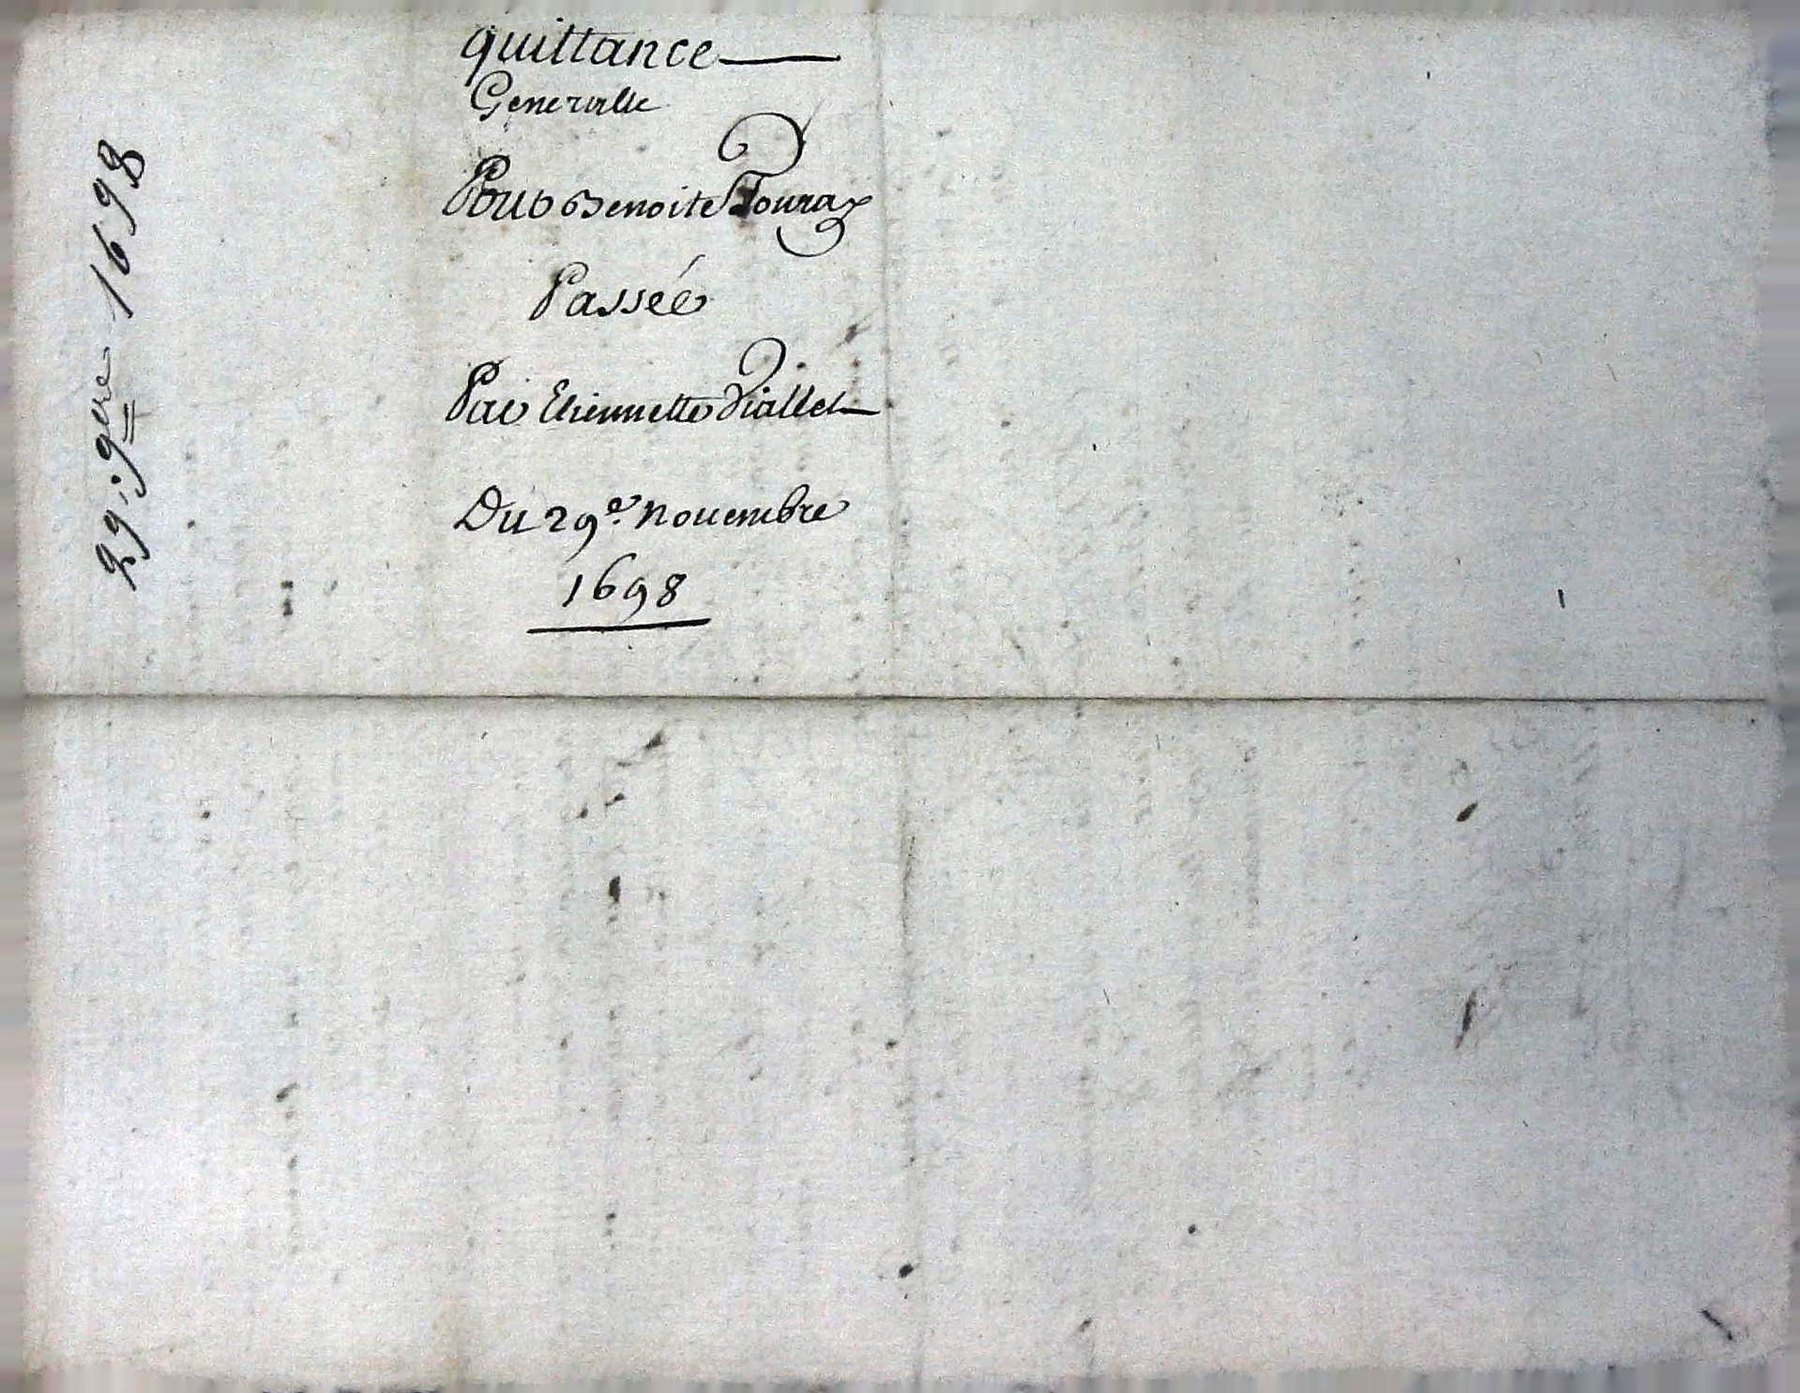 quittance
Generalle
Pour Benoite Tourax
Passée
Par Etiennette Viallet
Du 29e. nouembre
1698
29: 9bre 1698